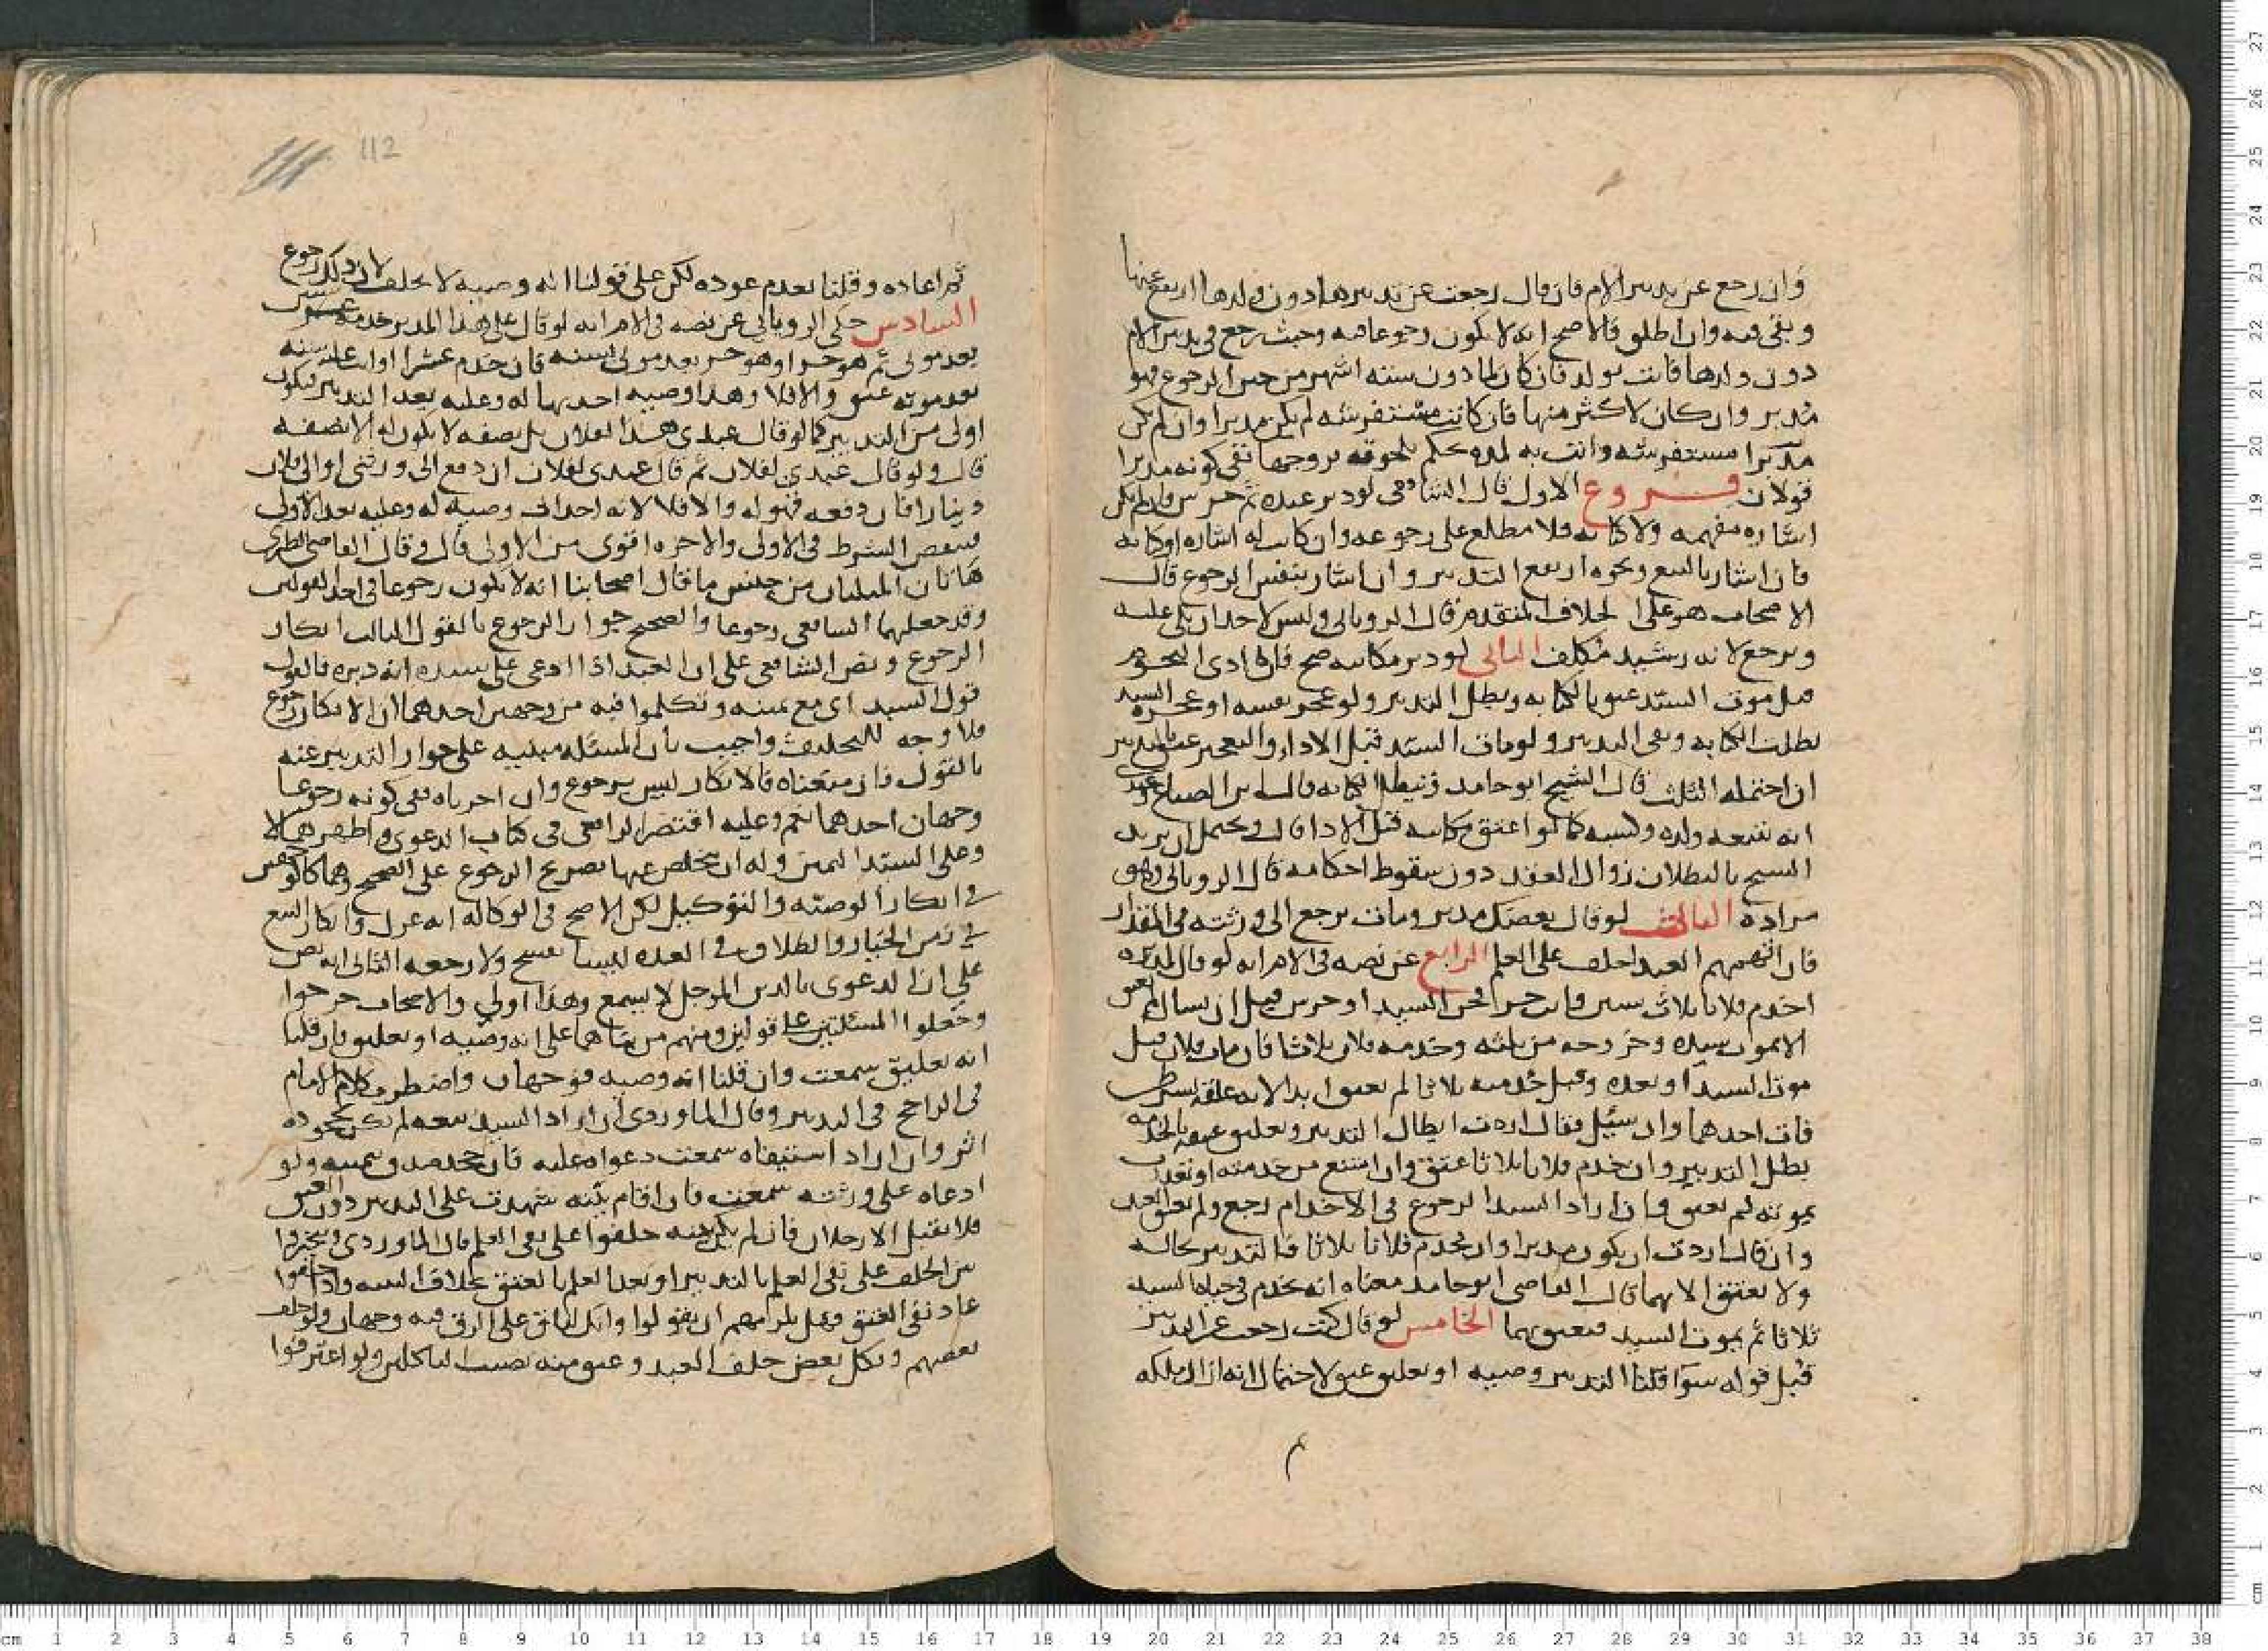 وان رجع عن تدبير الام فان قال رجعت عن تدبيرها دون ولدها ارتفع عنها
وبقي فيه وان اطلق فالاصح انه لا يكون رجوعا فيه وحيث رجع في تدبير الام
دون ولدها فاتت بولد فان كان لما دون ستة اشهر من حين الرجوع فهو
مدبر وان كان لاكثر منها فان كانت مستفرشة لم يكن مدبرا وان لم تكن
مستفرشة واتت به لمدة يحكم بلحوقه بزوجها ففي كونه مدبرا
قولان فروع الاول قال الشافعي لو دبر عبده ثم خرس فان لم تكن
اشارة مفهمة ولا كتابة فلا مطلع على رجوعه وان كانت له اشارة او كتابة
فان اشار بالبيع ونحوه ارتفع التدبير وان اشار بنفس الرجوع قال
الاصحاب هو على الخلاف المتقدم قال الروياني وليس لاحد ان يلي عليه
ويرجع لانه رشيد مكلف الثاني لو دبر مكاتبه صح فان ادى النجوم
قبل موت السيد عتق بالكتابة وبطل التدبير ولو عجز نفسه او عجزه السيد
بطلت الكتابة وبقي التدبير ولو مات السيد قبل الاداء والتعجيز عتق بالتدبير
ان احتمله الثلث قال الشيخ ابو حامد وتبطل الكتابة قال ابن الصباغ وعندي
انه يتبعه ولده وكسبه كما لو اعتق مكاتبه قبل الاداء قال ويحتمل ان يريد
الشيخ بالبطلان زوال العقد دون سقوط احكامه قال الروياني وهو
مراده الثالث لو قال بعضك مدبر ومات يرجع الى ورثته في المقدار
فان اتهمهم العبد احلف على العلم الرابع عن نصه في الام انه لو قال لمدبره
اخدم فلانا ثلاث سنين فانت حر السيد او خرس قبل ان يسال لم يعتق
الا بموت سيده وخروجه من ثلثه وخدمة فلان ثلاثا فان مات فلان قبل
موت السيد او بعده وقبل خدمته ثلاثا لم يعتق ابدا لانه علقه بشرطين
فات احدهما وان سئل فقال اردت ابطال التدبير وتعليق عتقه بالخدمة
بطل التدبير وان خدم فلانا ثلاثا عتق وان امتنع من خدمته او تعذرت
بموته لم يعتق وان اراد السيد الرجوع في الاخدام رجع ولم يعتق العبد
وان قال اردت ان يكون مدبرا وان يخدم فلانا ثلاثا فالتدبير بحاله
ولا يعتق الا بهما قال القاضي ابو حامد معناه انه يخدم في حياة السيد
ثلاثا ثم يموت السيد فيعتق بهما الخامس لو قال كنت رجعت عن التدبير
قبل قوله سوا قلنا التدبير وصية او تعليق عتق لاحتمال انه ازال ملكه
112
ثم اعاده وقلنا بعدم عوده لكن على قولنا انه وصية لا يحلف لان ذلك رجوع
السادس حكى الروياني عن نصه في الام انه لو قال على هذا المدبر خدمة عشر سنين
بعد موتي ثم هو حر او هو حر بعد موتي بسنة فان خدم عشرا او اتت عليه سنة
بعد موته عتق والا فلا وهذا وصية احدثها له وعليه بعد التدبير فيكون
اولى من التدبير كما لو قال عبدي هذا لفلان بل نصفه لا يكون له الا نصفه
قال ولو قال عبدي لفلان ثم قال عبدي لفلان ان دفع الى ورثتي او الى فلان
دينارا فان دفعه فهو له والا فلا لانه احدث وصية له وعليه بعد الاولى
فينقض الشرط في الاولى والاخرة اقوى من الاولى قال وقال القاضي الطبري
هاتان المسئلتان من جنس ما قال اصحابنا انه لا يكون رجوعا في احد القولين
وقد جعلهما الشافعي رجوعا والصحيح جواز الرجوع بالقول الثالث انكار
الرجوع ونص الشافعي على ان العبد اذا ادعى على سيده انه دبره فالقول
قول السيد اي مع يمينه وتكلموا فيه من وجهين احدهما ان الانكار رجوع
فلا وجه للتحليف واجيب بان المسئلة مبنية على جواز التدبير عنه
بالقول فان منعناه فالانكار ليس برجوع وان اجزناه ففي كونه رجوعا
وجهان احدهما نعم وعليه اقتصر الرافعي في كتاب الدعوى واظهرهما لا
وعلى السيد اليمين وله ان يتخلص عنها بصريح الرجوع على الصحيح وهما كالوجهين
في انكار الوصية والتوكيل لكن الاصح في الوكالة انه عزل وانكار البيع
في زمن الخيار والطلاق في العدة ليسا بفسخ ولا رجعة الثاني انه نص
على ان الدعوى بالدين المؤجل لا تسمع وهذا اولى والاصحاب خرجوا
وجعلوا المسئلتين على قولين ومنهم من بناهما على انه وصية او تعليق فان قلنا
انه تعليق سمعت وان قلنا انه وصية فوجهان واضطرب كلام الامام
في الراجح في التدبير وقال الماوردي ان اراد السيد بيعه لم يكن لجحوده
اثر وان اراد استبقاه سمعت دعواه عليه فان جحد صدق بيمينه ولو
ادعاه على ورثته سمعت فان اقام بينة شهدت على التدبير دون العتق
فلا يقبل الا رجلان فان لم يكن بينة حلفوا على نفي العلم قال الماوردي ويخيروا
بين الحلف على نفي العلم بالتدبير او بعدم العلم بالعتق بخلاف السيد واذا حلفوا
عاد نفي العتق وهل يلزمهم ان يقولوا وانك لباق على الرق فيه وجهان ولو حلف
بعضهم ونكل بعض حلف العبد وعتق منه نصيب الناكلين ولو اعترفوا